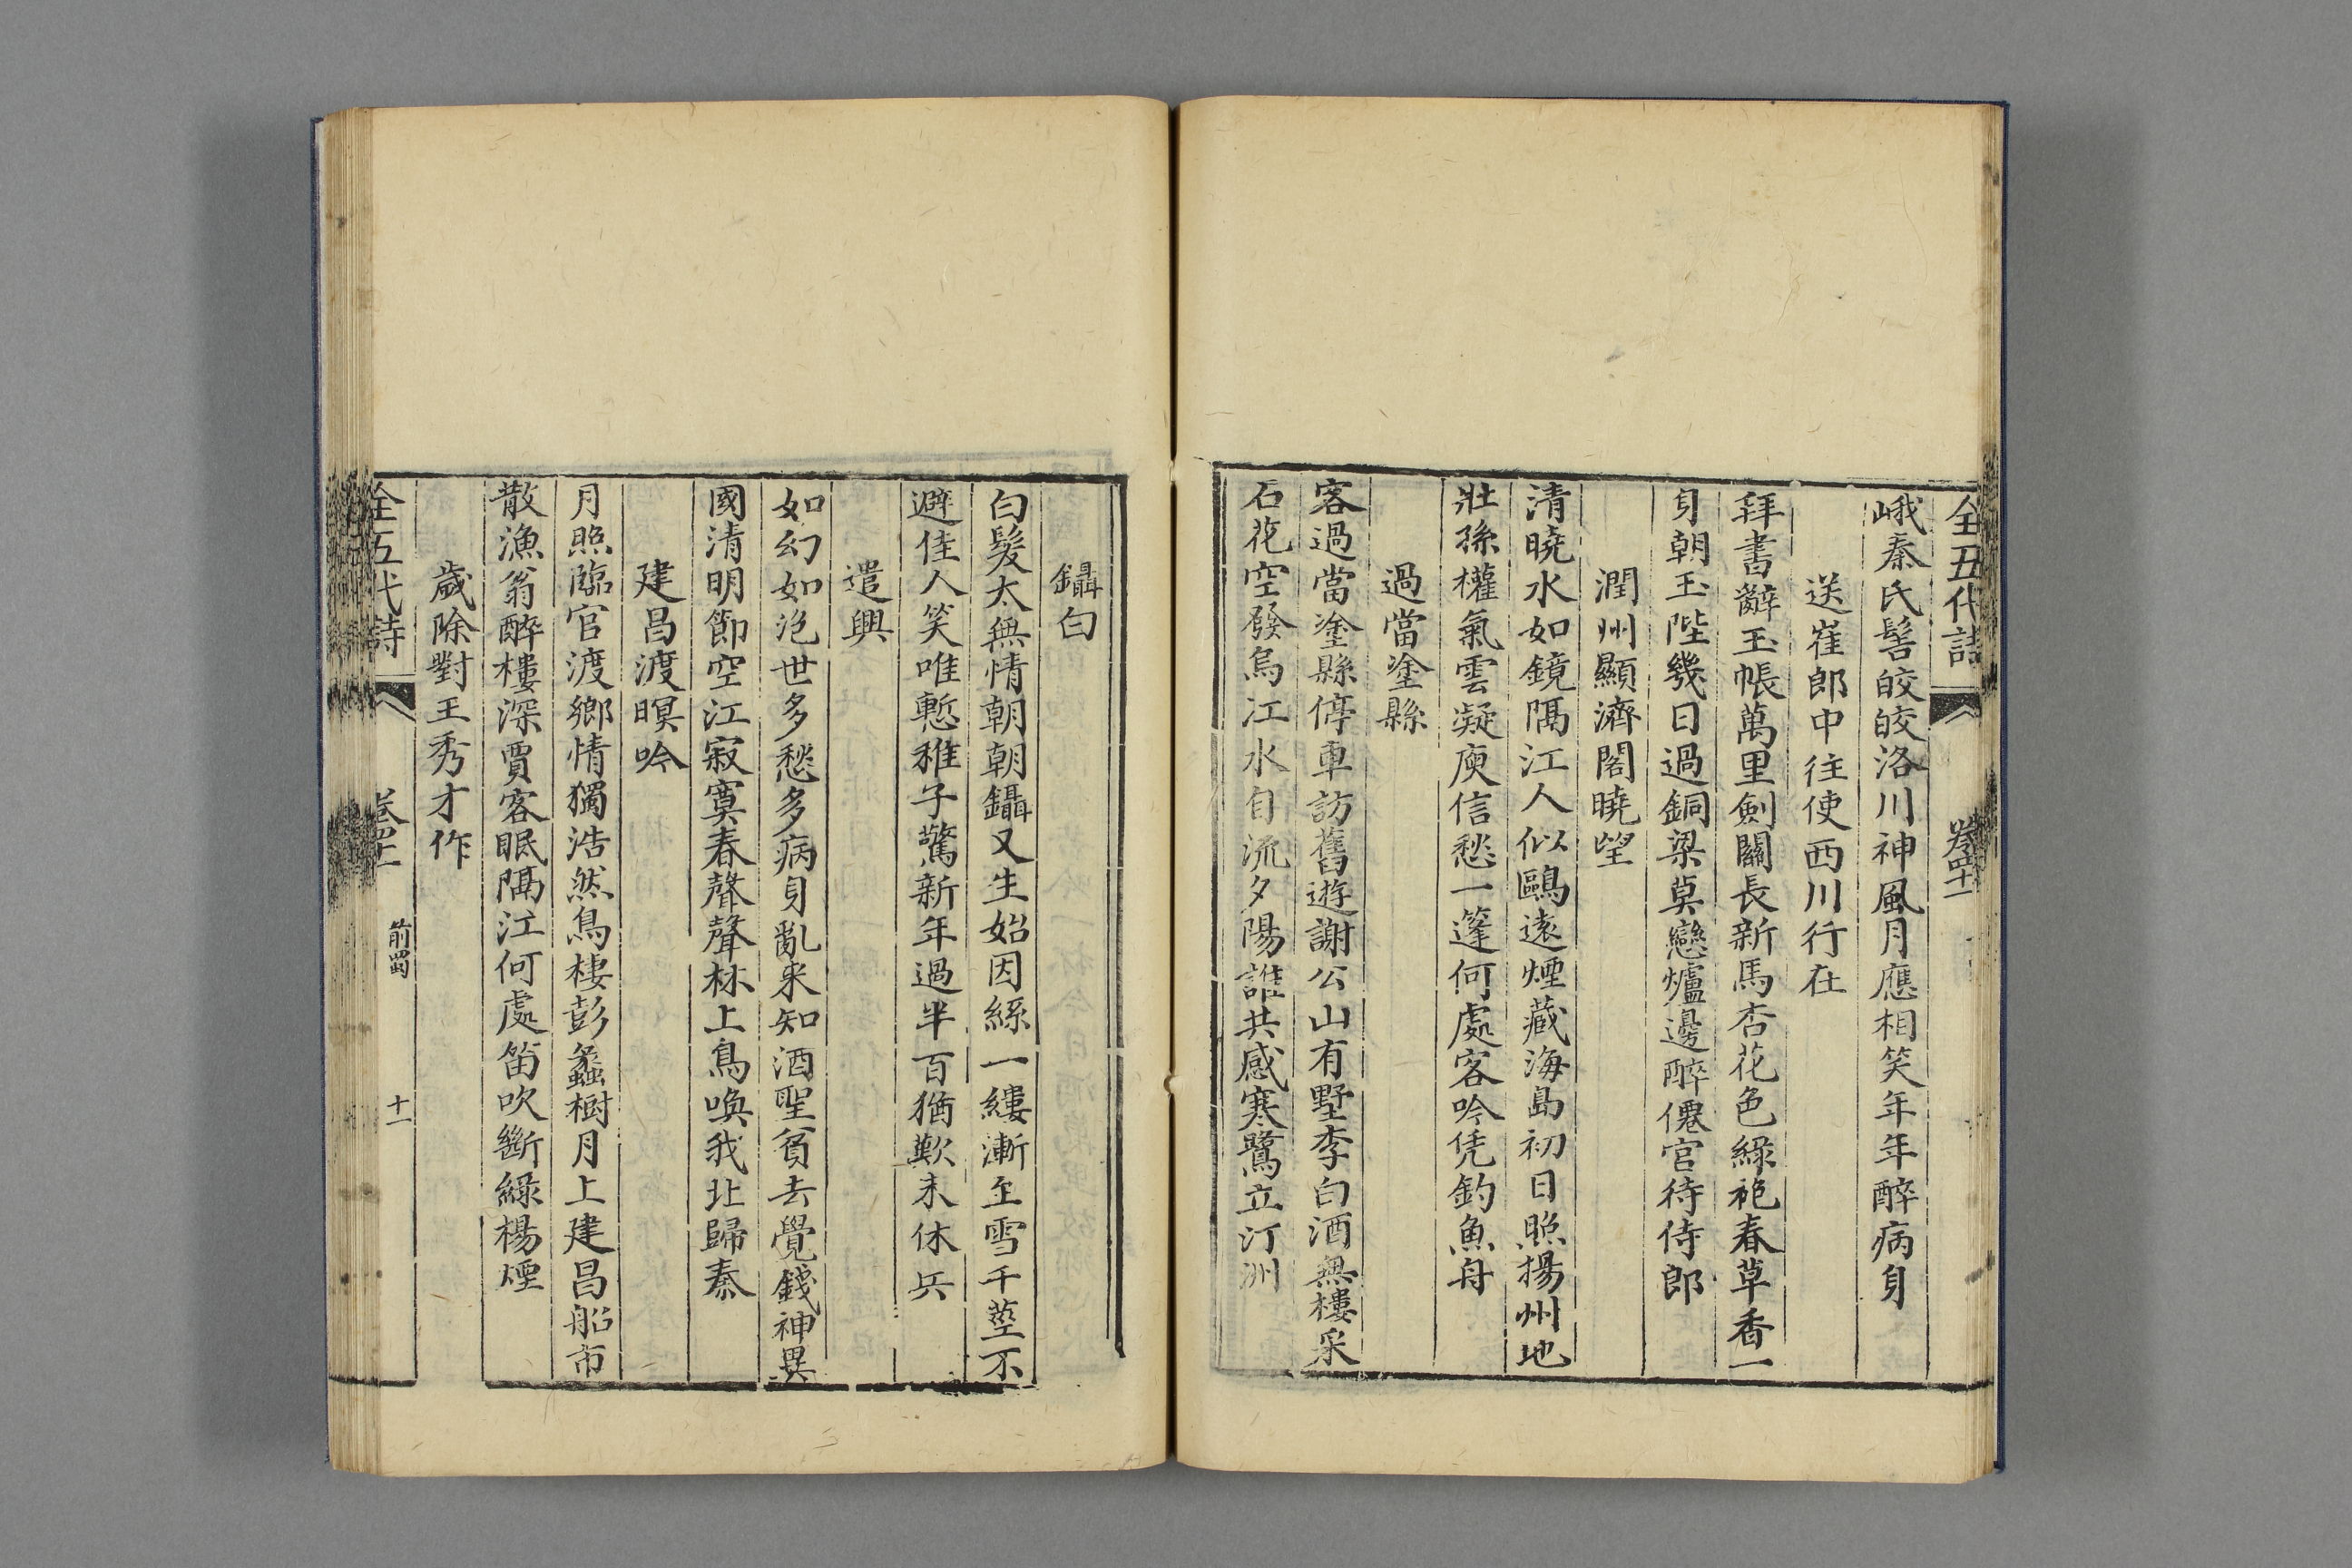 全五代詩 卷四十一
峨秦氏髻皎皎洛川神風月應相笑年年醉病身
送崔郎中往使西川行在
拜書辭玉帳萬里劍關長新馬杏花色綠袍春草香一
身朝玉陛幾日過銅梁莫戀爐邊醉僊宮待侍郎
潤州顯濟閣曉望
清曉水如鏡隔江人似鷗遠煙藏海島初日照揚州地
壯孫權氣雲凝庾信愁一篷何處客吟凭釣魚舟
過當塗縣
客過當塗縣停車訪舊遊謝公山有墅李白酒無樓采
石花空發烏江水自流夕陽誰共感寒鷺立汀洲
鑷白
白髮太無情朝朝鑷又生始因絲一縷漸至雪千莖不
避佳人笑唯慙稚子驚新年過半百猶歎未休兵
遣興
如幻如泡世多愁多病身亂來知酒聖貧去覺錢神異
國清明節空江寂寞春聲聲林上鳥喚我北歸秦
建昌渡暝吟
月照臨官渡鄉情獨浩然鳥棲彭蠡樹月上建昌船市
散漁翁醉樓深賈客眠隔江何處笛吹斷綠楊煙
歲除對王秀才作
全五代詩 卷四十一 前蜀 十一